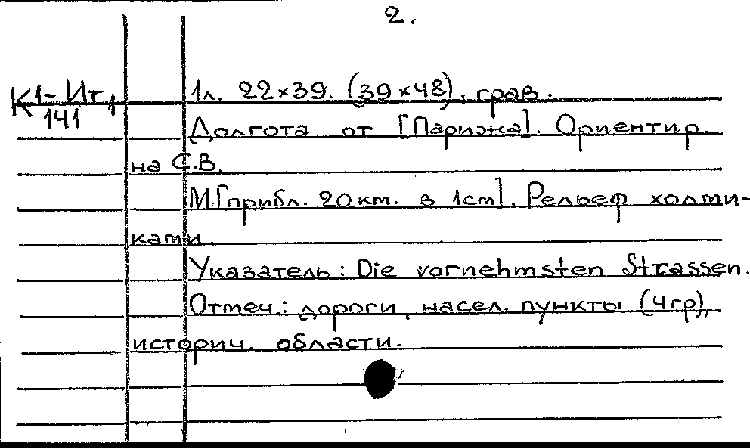 2.
К1-Ит 1л. 22×39. (39×48), грав.
141 1
Долгота от [Парижа]. Ориентир.
на С.В.
М.[прибл. 20км. в 1см]. Рельеф холми-
ками.
Указатель: Die vornehmsten Strassen.
Отмеч.: дороги, насел. пункты (4гр),
историч. области.